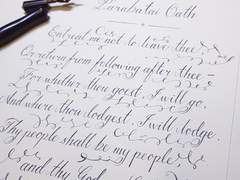 Parabatai Oath
Entreat me not to leave thee
Or return from following after thee —
For whither thou goest, I will go,
And where thou lodgest, I will lodge.
Thy people shall be my people,
and thy God